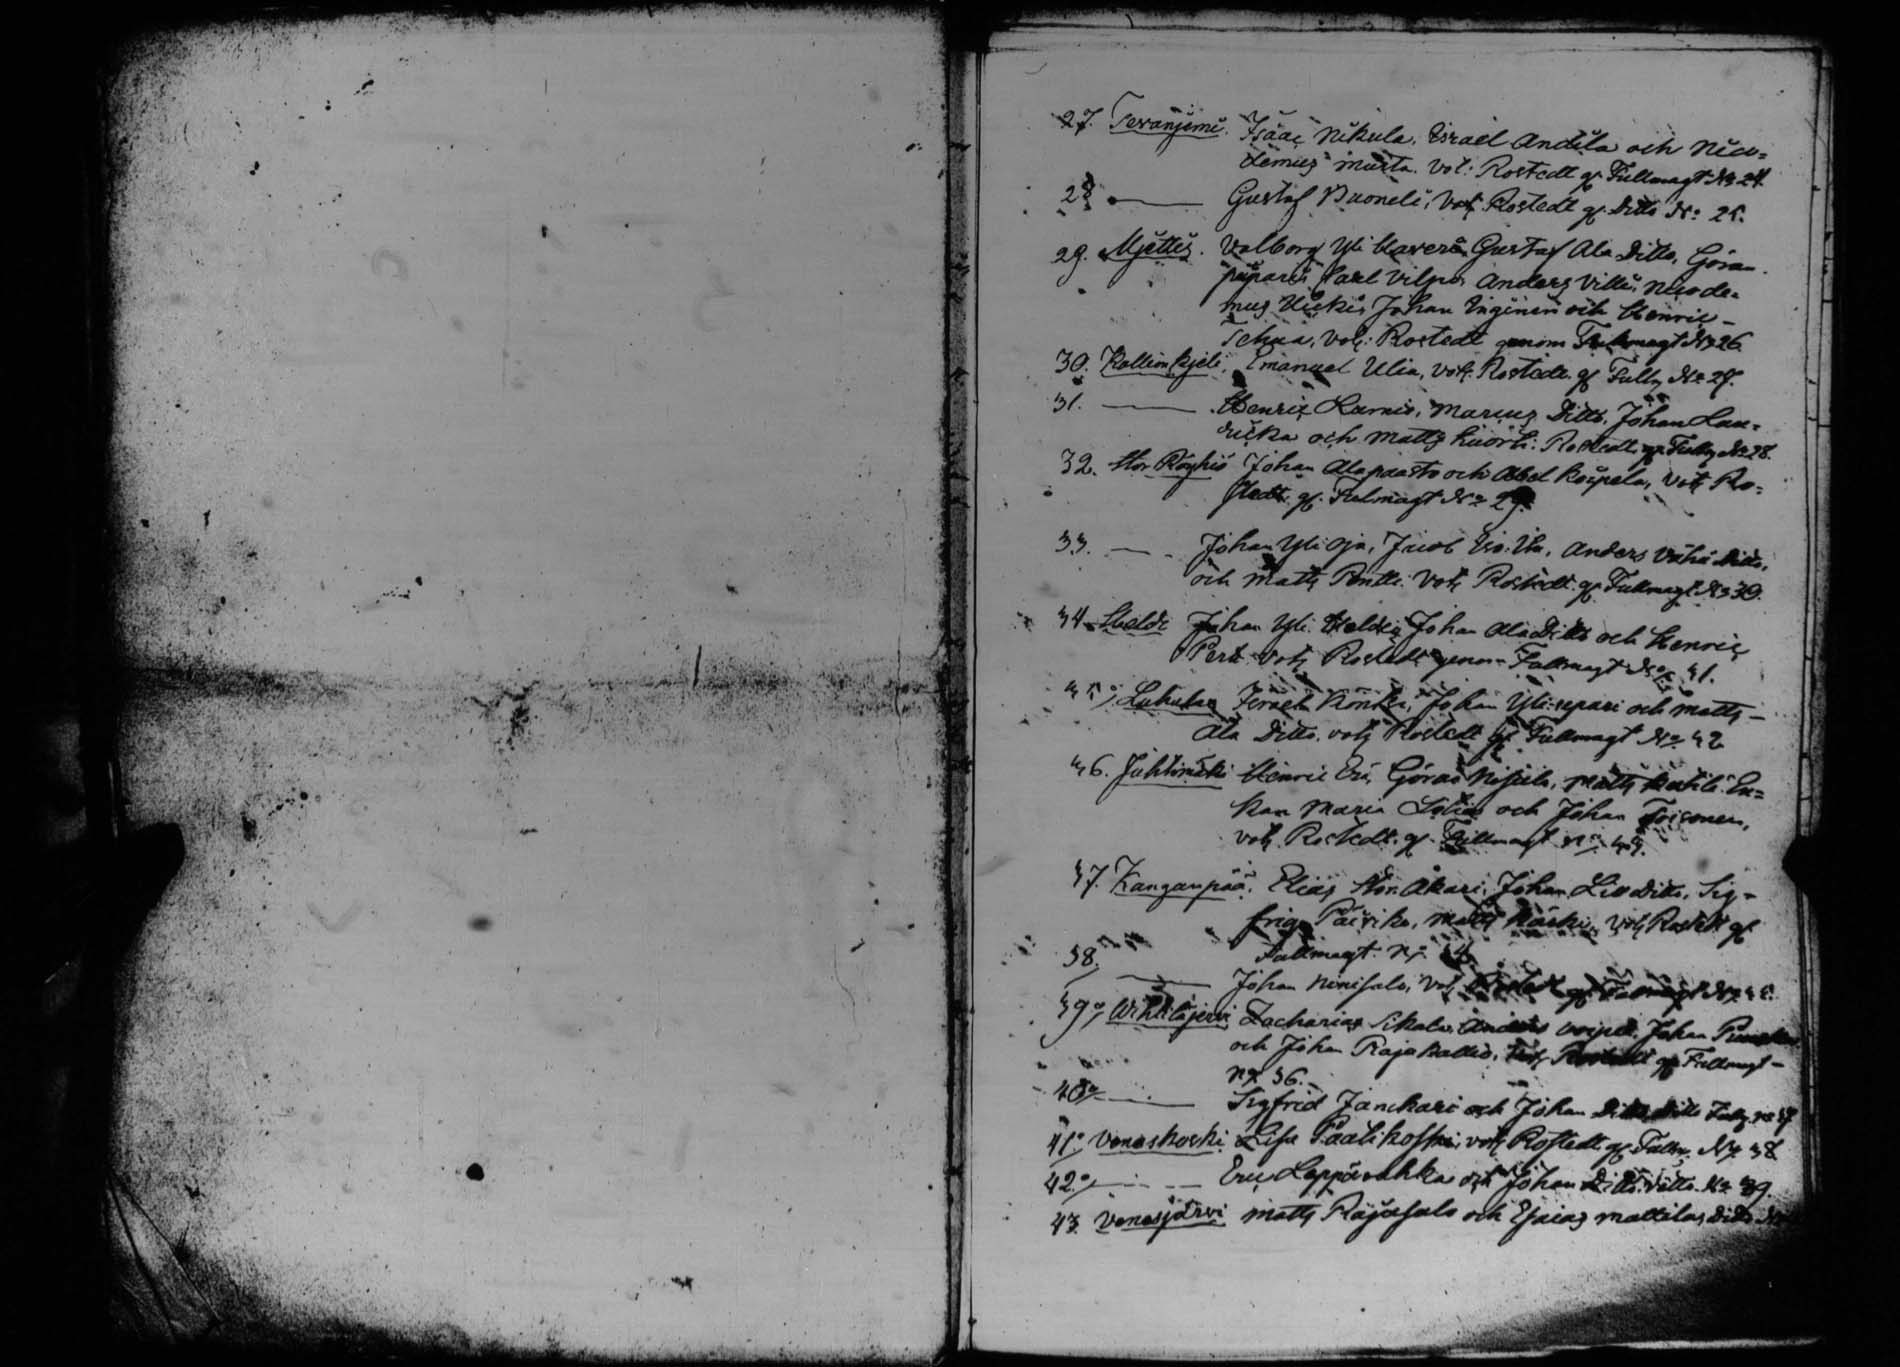 27. Tevanjemi. Isaac Nikula, Israel Andila och Nico-
demus Musta. vol: Rostedt gf Fullmagt No 24.
28 — Gustaf Nuoneli, vol: Rostedt gf Ditto No: 25.
29. Mjettis. Valborg Yli Haverä, Gustaf Ala Ditto, Göran
piipari, Carl Vilpo, Anders Villi, Nicode-
mus Uicki, Johan Inginen och Henric
Tehua, vol: Rostedt genom Fullmagt No 26
30. Kallimkjeli, Emanuel Ulia, vol: Rostedt gf Fullm No 27.
31. — Henric Laurio, Marcus Ditto, Johan Lau-
ricka och Matts Luorti: Rostedt gf Fullm No 28.
32. Stor Röyhiö Johan Alapaasto och Abel Koipela, vol: Ro-
stedt gf Fulmagt No 29.
33. — Johan Yli Oja, Jacob Iso, Anders Vähä Ditto,
och Matts Pentti. vol: Rostedt gf Fullmagt No 30.
34 Heldi Johan Yli Heldi, Johan Ala Ditto och Henric
Pert vol: Rostedt genom Fullmagt No 31.
35, Israel Könki, Johan Yli-separi och Matts
Ala Ditto. vol: Rostedt gf Fullmagt No 32
36. Juhtimäki Henric Esi, Göran, Matts En-
kan Maria och Johan Toisonen,
vol: Rostedt gf Fullmagt No 33.
37. Kanganpää. Elias Stor Åkari, Johan Lill Ditto, Sig-
frig Päiviko, Matts Kåski, vol: Rostedt gf
Fullmagt. No 34
38. — Johan Ninisalo, vol: Rostedt gf Fullmagt No 35.
39, Wihtiläjervi Zacharias Sikala, Anders, Johan
och Johan Rajakallio, vol: Rostedt gf Fullmagt
No 36.
40, — Sigfrid Janckari och Johan Ditto Ditto Fullm No 37
41. Venoskoski Lisa Paalikoski, vol: Rostedt gf Fullm. No 38
42. — Eric Leppävahka och Johan Ditto ditto. No 39.
43. Venesjärvi Matts Rajasalo och Esaias Mattilas Ditto No